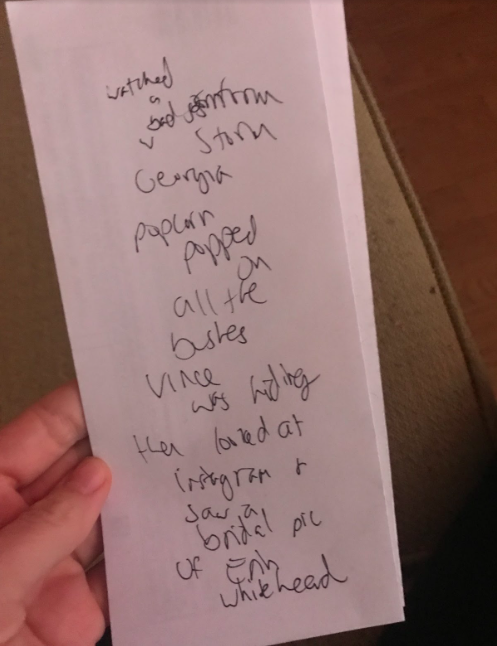 watched
a
bad
Storm
Georgia
popcorn
popped
on
all the
bushes
Vince
was hiding
then looked at
instagram +
saw a
bridal pic
of Erin
whitehead